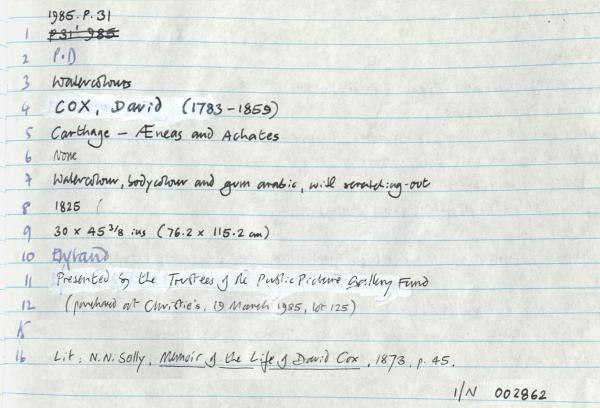 1985.P.31
1 P31'985
2 P.D
3 Watercolours
4 COX, David (1783-1859)
5 Carthage - Æneas and Achates
6 None
7 Watercolour, bodycolour and gum arabic, with scratching-out
8 1825
9 30 x 45 3/8 ins (76.2 x 115.2 cm)
10
11 Presented by the Trustees of the Public Picture Gallery Fund
12 (purchased at Christie's, 19 March 1985, lot 125)
16 Lit: N.N. Solly, Memoir of the Life of David Cox, 1873, p. 45.
I/N 002862